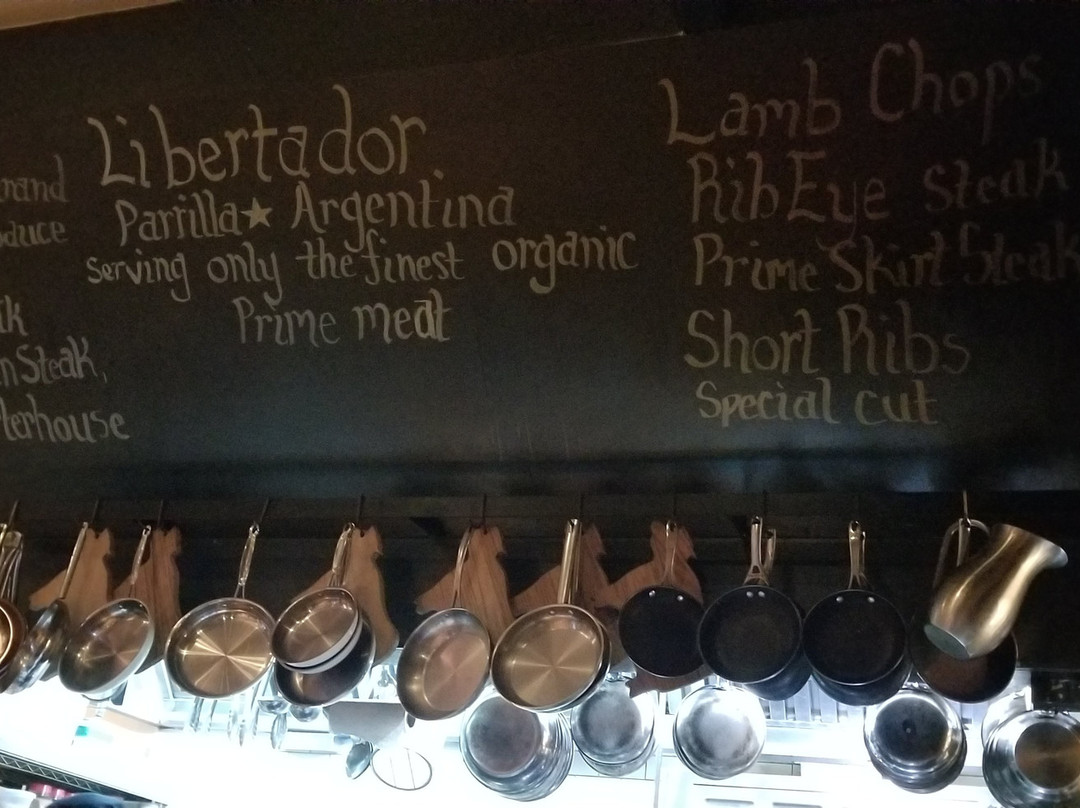 Libertador.
Parrilla★ Argentina
serving only the finest organic
Prime meat
Lamb Chops
Rib Eye Steak
Prime Skirt Steak
Short Ribs
Special cut
Steak,